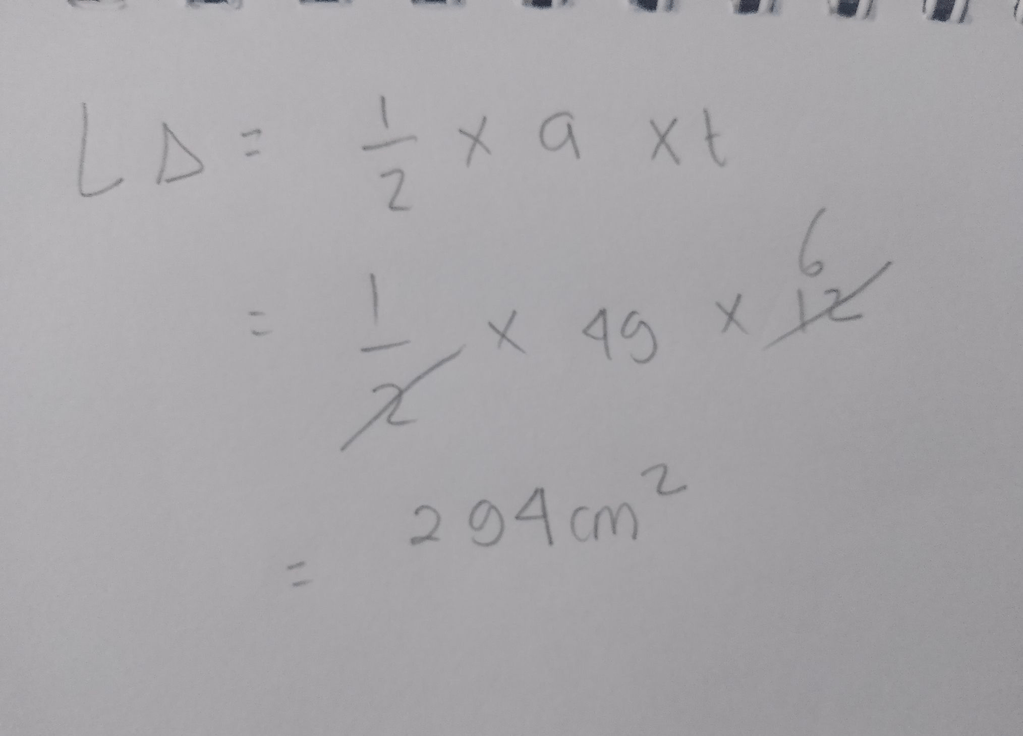 L Δ = 1/2 × a × t
= 1/2 × 49 × 12 6
= 294 cm²